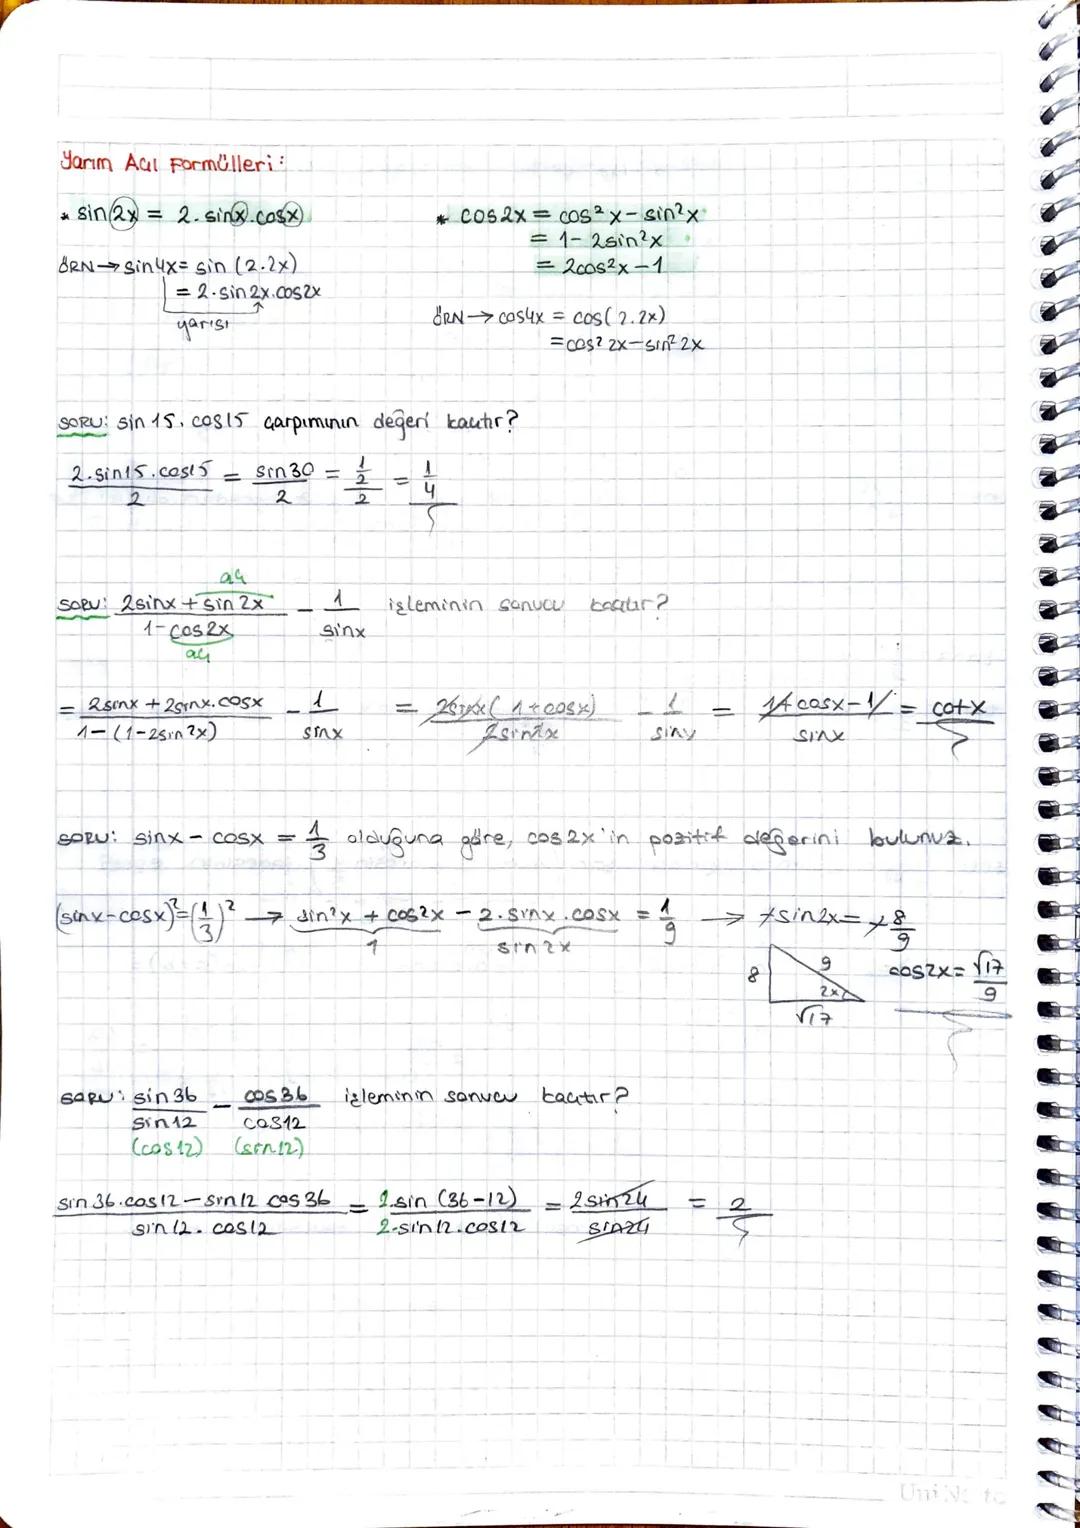 Yarım Açı Formülleri:
* sin2x = 2.sinx.cosx
* cos2x = cos²x - sin²x
= 1 - 2sin²x
= 2cos²x - 1
ÖRN → sin4x = sin (2.2x)
= 2.sin2x.cos2x
yarısı
ÖRN → cos4x = cos(2.2x)
= cos² 2x - sin² 2x
SORU: sin 15. cos15 çarpımının değeri kaçtır?
2.sin15.cos15 / 2 = sin30 / 2 = 1/2 / 2 = 1/4
açı
SORU: 2sinx + sin2x / 1 - cos2x - 1 / sinx işleminin sonucu kaçtır?
açı
= 2sinx + 2sinx.cosx / 1 - (1 - 2sin²x) - 1 / sinx = 2sinx(1 + cosx) / 2sin²x - 1 / sinx = 1 + cosx - 1 / sinx = cotx
SORU: sinx - cosx = 1/3 olduğuna göre, cos2x'in pozitif değerini bulunuz.
(sinx - cosx)² = (1/3)² → sin²x + cos²x - 2.sinx.cosx = 1/9 → -sin2x = -8/9
1 sin2x
8 9 2x √17
cos2x = √17/9
SORU: sin36 / sin12 - cos36 / cos12 işleminin sonucu kaçtır?
(cos12) (sin12)
sin36.cos12 - sin12 cos36 / sin12.cos12 = 2.sin (36-12) / 2.sin12.cos12 = 2sin24 / sin24 = 2